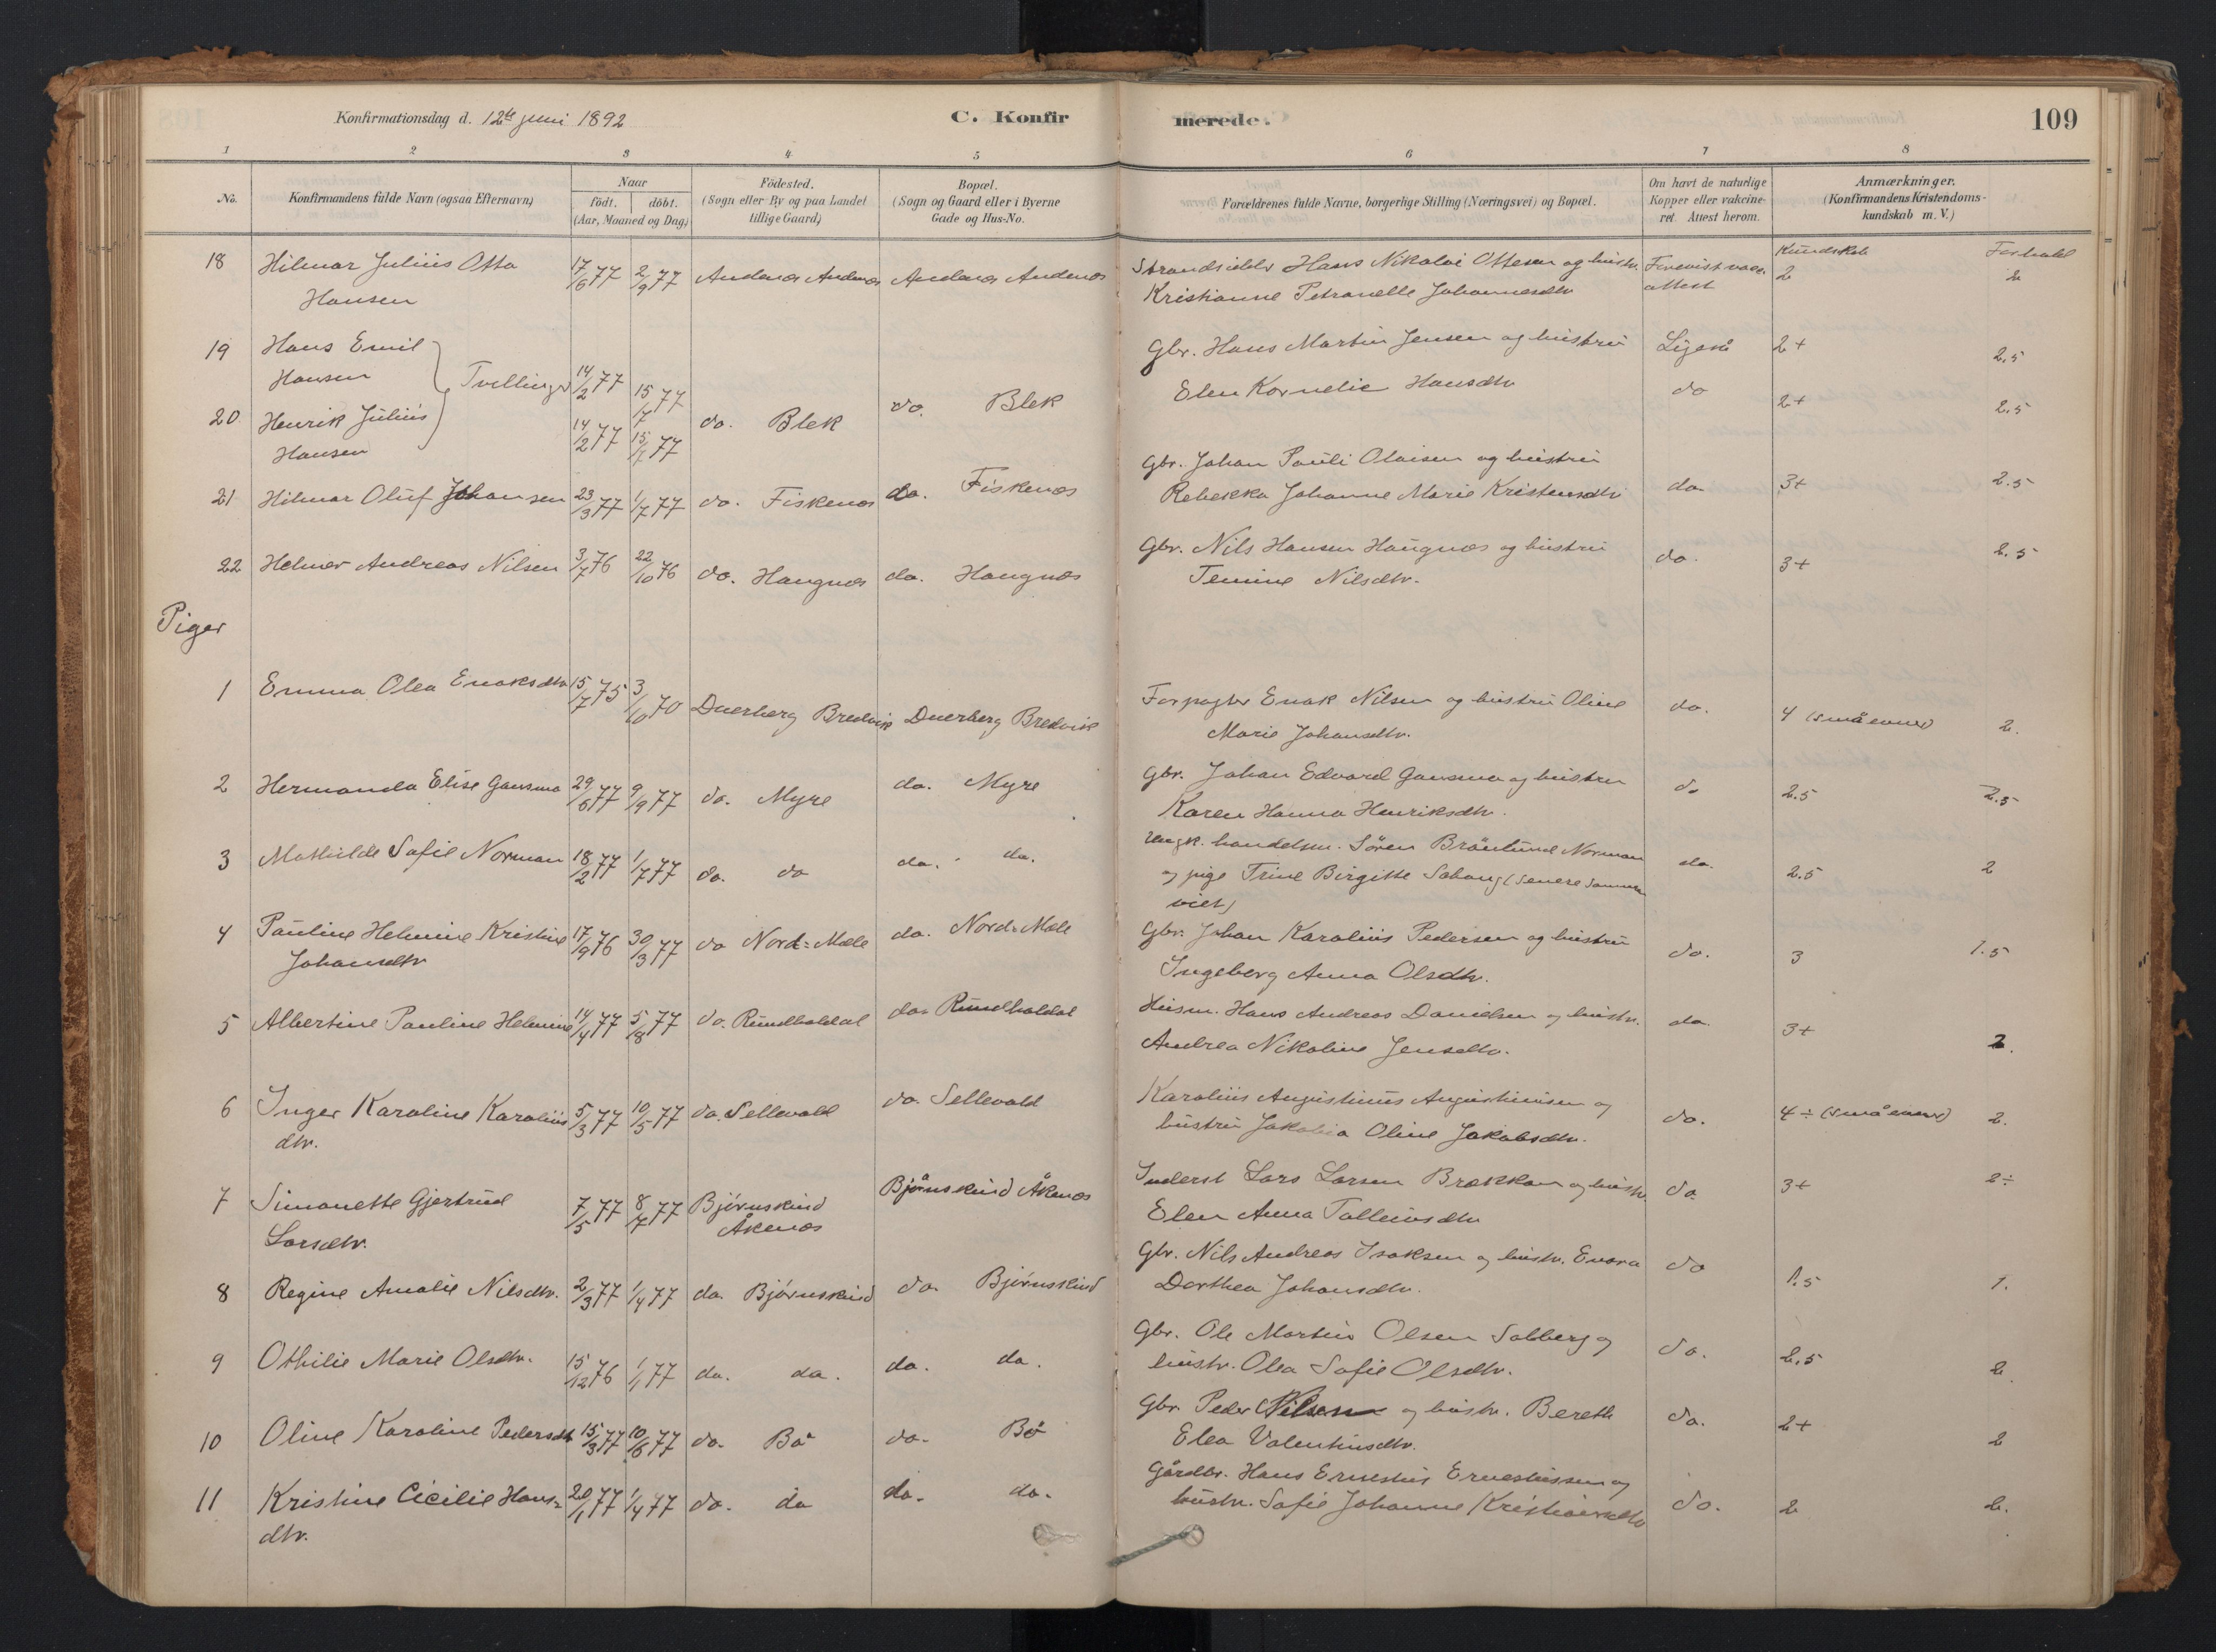 Konfirmationsdag d. 12te juni 1892
C. Konfirmerede.
109
1 2 3 4 5 6 7 8
No.
Konfirmandens fulde Navn (ogsaa Efternavn)
Naar
födt. döbt.
(Aar, Maaned og Dag)
Födested.
(Sogn eller By og paa Landet
tillige Gaard)
Bopæl.
(Sogn og Gaard eller i Byerne
Gade og Hus-No.
Forældrenes fulde Navne, borgerlige Stilling (Næringsvei) og Bopæl.
Om havt de naturlige
Kopper eller vakcine-
ret. Attest herom.
Anmærkninger.
(Konfirmandens Kristendoms-
kundskab m. V.)
Kundskab Forhold
18 Hilmar Julius Otto 17/6 77 2/9 77 Andenes Andenes Andenes Andenes Strandsidder Hans Nikolai Ottesen og hustr. Forevist vacc. 2 2
Hansen Kristianne Petranelle Johannesdtr attest
19 Hans Emil Gbr. Hans Martin Jensen og hustru Ligeså 2+ 2,5
Hansen Tvillinger 14/2 77 15/7 77 Elen Kornelie Hansdtr do
20. Henrik Julius 14/2 77 15/7 77 do. Blek do. Blek 2+ 2,5
Hansen
21 Hilmar Oluf Johansen 23/3 77 1/7 77 do. Fiskenes do. Fiskenes Gbr. Johan Pauli Olaisen og hustru
Rebekka Johanne Marie Kristensdtr do 3+ 2.5
22 Helmer Andreas Nilsen 3/7 76 22/10 76 do. Haugnes do. Haugnes Gbr. Nils Hansen Haugnæs og hustru do. 3+ 2.5
Temine Nilsdtr.
Piger
1 Emma Olea Enoksdtr 15/7 75 3/10 70 Dverberg Bredvik Dverberg Bredvik Forpagter Enok Nilsen og hustru Oline do. 4 (små evner) 2.
Marie Johansdtr.
2 Hermanda Elise Gausma 29/6 77 9/9 77 do. Myre do. Myre Gbr. Johan Edvard Gausma og hustru do 2.5 2.5
Karen Hanna Henriksdtr.
3 Mathilde Sofie Norman 18/2 77 1/7 77 do. do do. do. Ungk. handelsm. Søren Brönlund Norman do. 2.5 2
og pige Trine Birgitte (senere sammen
viet)
4 Pauline Helmine Kristine 17/9 76 30/3 77 do Nord=Mele do. Nord=Mele Gbr. Johan Karolius Pedersen og hustru do. 3 1.5
Johansdtr Ingeborg Anna Olsdtr.
5 Albertine Pauline Helmine 14/4 77 5/8 77 do. Rundholdal do. Rundholdal Husm. Hans Andreas Danielsen og hustr. do. 3+ 2.
Andrea Nikoline Jensdtr.
6 Inger Karoline Karolius 5/3 77 10/5 77 do. Sellevold do. Sellevold Karolius Augustinus Augustinusen og do. 4÷ (små evner) 2.
dtr. hustru Jakobia Oline Jakobsdtr.
7 Simonette Gjertrud 7/5 77 8/7 77 Bjørnskind Bjørnskind Åkenes Inderst Lars Larsen Brækkan og hustr. do. 3+ 2÷
Larsdtr. Åkenes Elen Anna Tolleivsdtr
8 Regine Amalie Nilsdtr. 2/3 77 1/4 77 do. Bjørnskind do. Bjørnskind Gbr. Nils Andreas Isaksen og hustr. do 1.5 1.
Dorthea Johansdtr.
9 Othilie Marie Olsdtr. 15/12 76 1/1 77 do. do. do. do. Gbr. Ole Martin Olsen Solberg og do. 2,5 2.
hustr. Olea Sofie Olsdtr.
10 Oline Karoline Pedersdtr 15/3 77 10/6 77 do. Bö do. Bö Gbr. Peder Nilsen og hustr. Bereth do. 2+ 2
Elea Valentinsdtr.
11 Kristine Cicilie Hans= 20/1 77 1/4 77 do. do do. do. Gårdbr. Hans Ernestus Ernestussen og do. 2 2.
dtr. hustr. Sofie Johanne Kristiansdtr